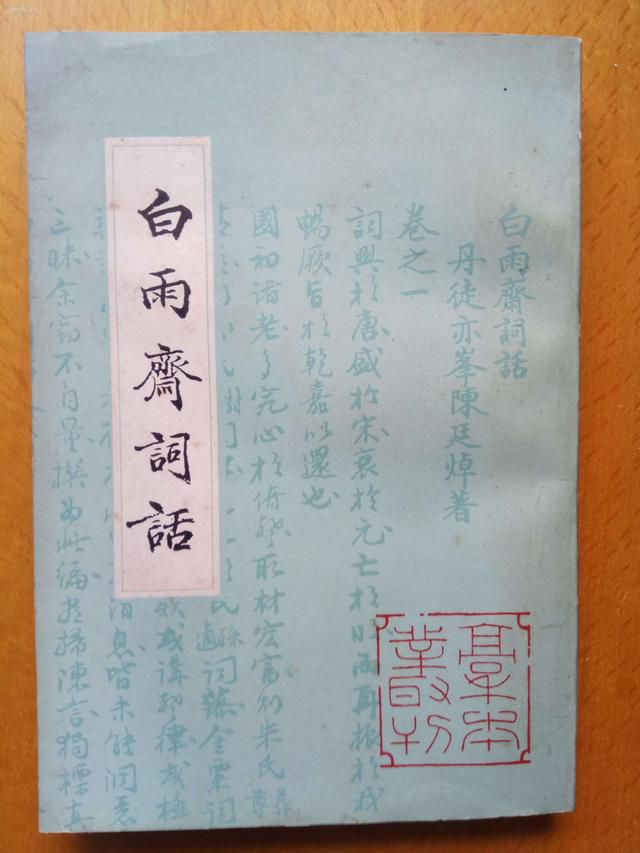 白雨齋詞話
白雨齋詞話
丹徒亦峯陳廷焯著
卷之一
詞興於唐盛於宋衰於元亡於明而再振於我
暢厥旨於乾嘉以還也
國初諸老多究心於倚聲取材宏富則朱氏彝尊
孫遹詞藻金粟詞
或講聲律或極
消息皆未能洞悉
三昧余竊不自量撰為此編盡掃陳言獨標真